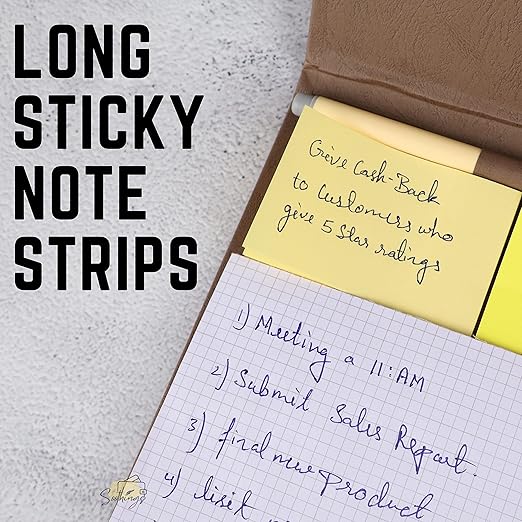 LONG
STICKY
NOTE
STRIPS
Give Cash-Back
to Customers who
give 5 Star ratings
1) Meeting a 11:AM
2) Submit Sales Report.
3) final new product
4) visit
Soothings